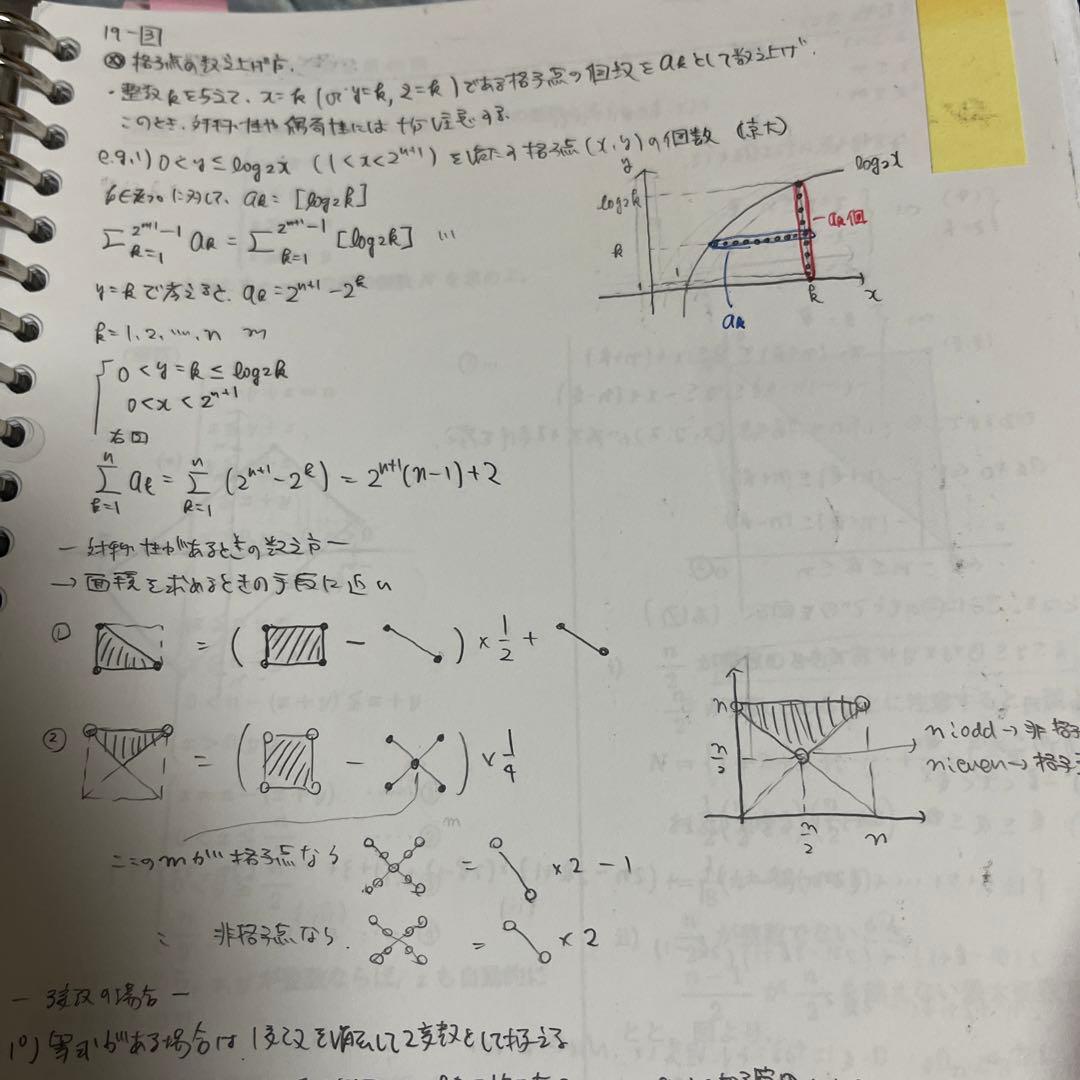 19-③
⊗ 格子点の数え上げ方.
・整数kを与えて、x=k (or y=k, z=k)である格子点の個数をakとして数え上げ.
このとき、対称性や偶奇性には十分注意する
e.g.1) 0<y≤log₂x (1<x<2ⁿ⁺¹) を満たす格子点(x,y)の個数 (京大)
に対して、ak=[log₂k]
Σ_{k=1}^{2ⁿ⁺¹-1} ak = Σ_{k=1}^{2ⁿ⁺¹-1} [log₂k] …
y=kで考えると、ak=2ⁿ⁺¹-2ᵏ
k=1, 2, …, n
0<y=k≤log₂k
0<x<2ⁿ⁺¹
右図
Σ_{k=1}^{n} ak = Σ_{k=1}^{n} (2ⁿ⁺¹-2ᵏ) = 2ⁿ⁺¹(n-1)+2
y
log₂x
log₂k
ak個
k
1
k
x
ak
― 対称性があるときの数え方 ―
→ 面積を求めるときの手段に近い
① = ( - ) × 1/2 +
② = ( - ) × 1/4
m
n
n/2
n/2
n
n:odd→非格子
n:even→格子
ここのmが格子点なら = ×2-1
〃 非格子点なら. = ×2
― 3変数の場合 ―
1°) 等式がある場合は、1変数を消去して2変数として捉える